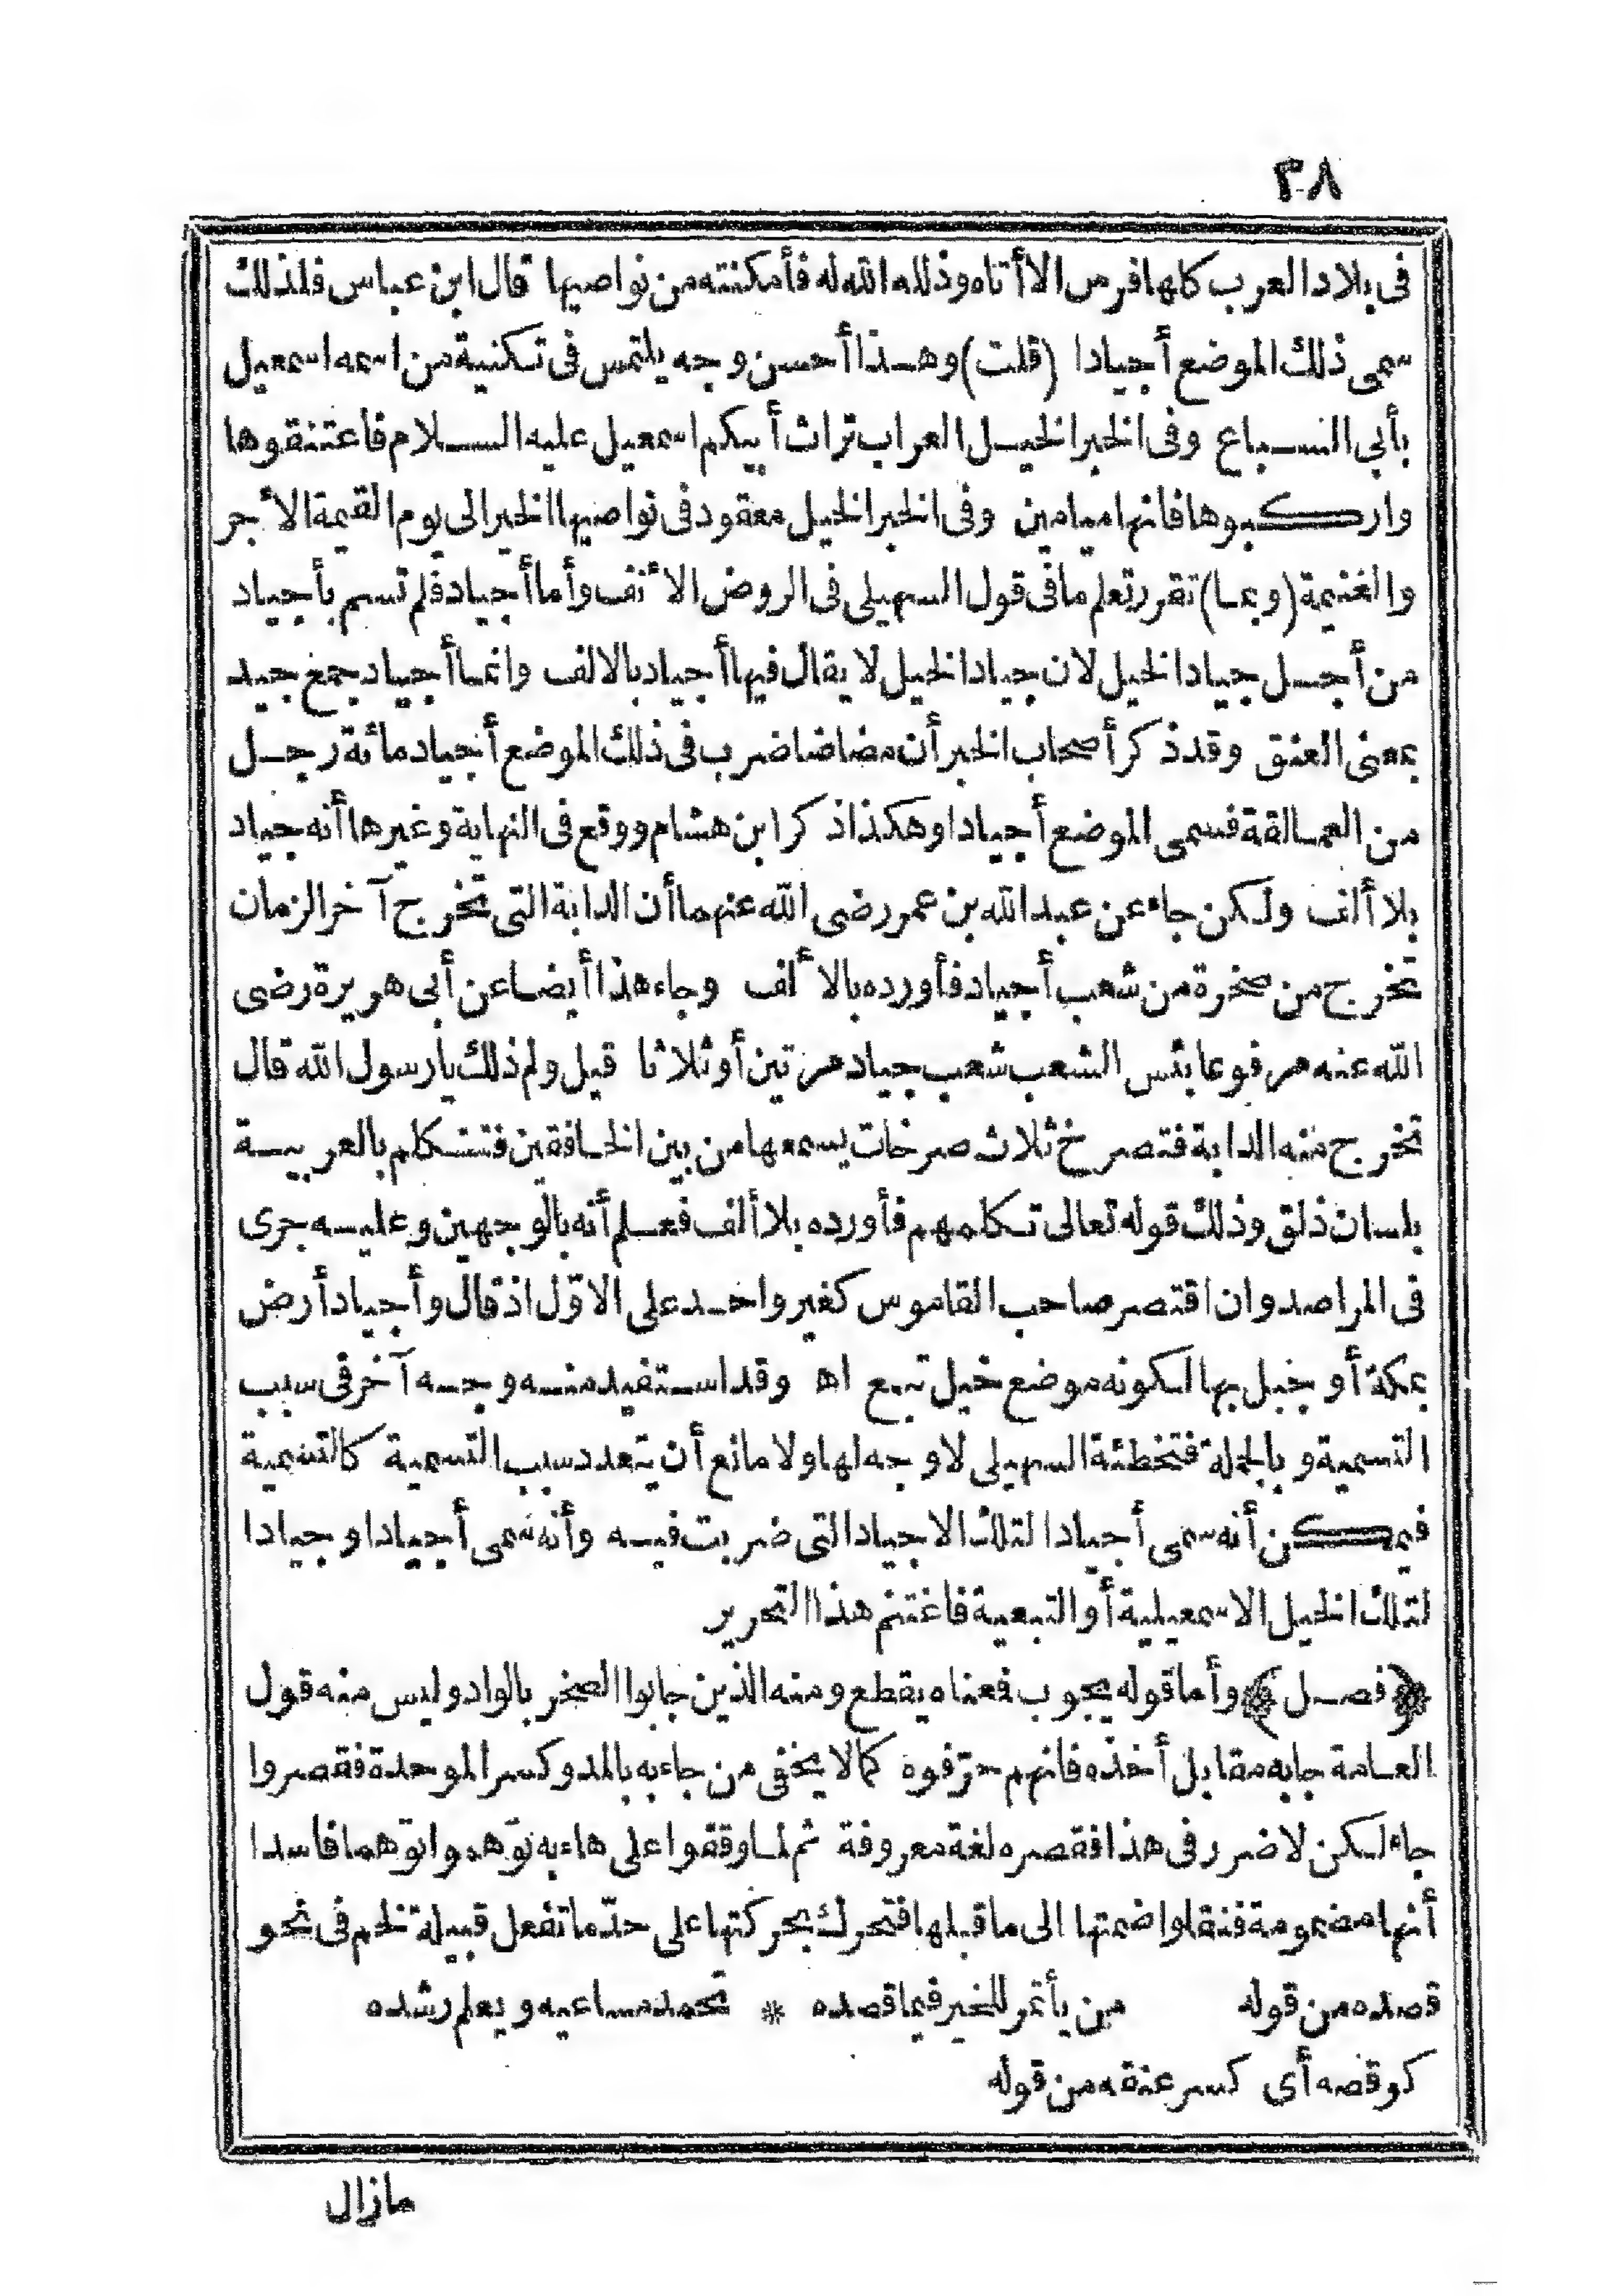 ٣٨
فى بلاد العرب كلها فرس الا أتاه وذلله الله له فأمكنته من نواصيها قال ابن عباس فلذلك
سمى ذلك الموضع أجيادا (قلت) وهذا أحسن وجه يلتمس فى تكنية من اسمه اسمعيل
بأبي السباع وفى الخبر الخيل العراب تراث أبيكم اسمعيل عليه السلام فاعتنقوها
واركبوها فانها ميامين وفى الخبر الخيل معقود فى نواصيها الخير الى يوم القيمة الأجر
والغنيمة (وبما) تقرر تعلم ما فى قول السهيلى فى الروض الأنف وأما أجياد فلم تسم بأجياد
من أجل جياد الخيل لان جياد الخيل لا يقال فيها أجياد بالالف وانما أجياد جمع جيد
بمعنى العنق وقد ذكر أصحاب الخبر أن مضاضا ضرب فى ذلك الموضع أجياد مائة رجل
من العمالقة فسمى الموضع أجيادا وهكذا ذكر ابن هشام ووقع فى النهاية وغيرها أنه جياد
بلا ألف ولكن جاء عن عبد الله بن عمر رضى الله عنهما أن الدابة التى تخرج آخر الزمان
تخرج من صخرة من شعب أجياد فأورده بالألف وجاء هذا أيضا عن أبى هريرة رضى
الله عنه مرفوعا بئس الشعب شعب جياد مرتين أو ثلاثا قيل ولم ذلك يا رسول الله قال
تخرج منه الدابة فتصرخ ثلاث صرخات يسمعها من بين الخافقين فتتكلم بالعربية
بلسان ذلق وذلك قوله تعالى تكلمهم فأورده بلا ألف فعلم أنه بالوجهين وعليه جرى
فى المراصد وان اقتصر صاحب القاموس كغير واحد على الاوّل اذ قال وأجياد أرض
بمكة أو جبل بها لكونه موضع خيل تبع اه وقد استفيد منه وجه آخر فى سبب
التسمية وبالجملة فتخطئة السهيلى لا وجه لها ولا مانع أن يتعدد سبب التسمية كالتسمية
فيمكن أنه سمى أجيادا لتلك الاجياد التى ضربت فيه وأنه سمى أجيادا وجيادا
لتلك الخيل الاسمعيلية أو التبعية فاغتنم هذا التحرير
﴿فصل﴾ وأما قوله يجوب فمعناه يقطع ومنه الذين جابوا الصخر بالواد وليس منه قول
العامة جابه مقابل أخذه فانهم حرّفوه كما لا يخفى من جاء به بالمد وكسر الموحدة فقصروا
جاء لكن لا ضرر فى هذا فقصره لغة معروفة ثم لما وقفوا على هاء به توّهموا توّهما فاسدا
أنها مضمومة فنقلوا ضمتها الى ما قبلها فتحرك بحركتها على حدّ ما تفعل قبيلة لخم فى نحو
قصده من قوله من يأتمر للخير فيما قصده * تحمد مساعيه ويعلم رشده
كوقصه أى كسر عنقه من قوله
مازال